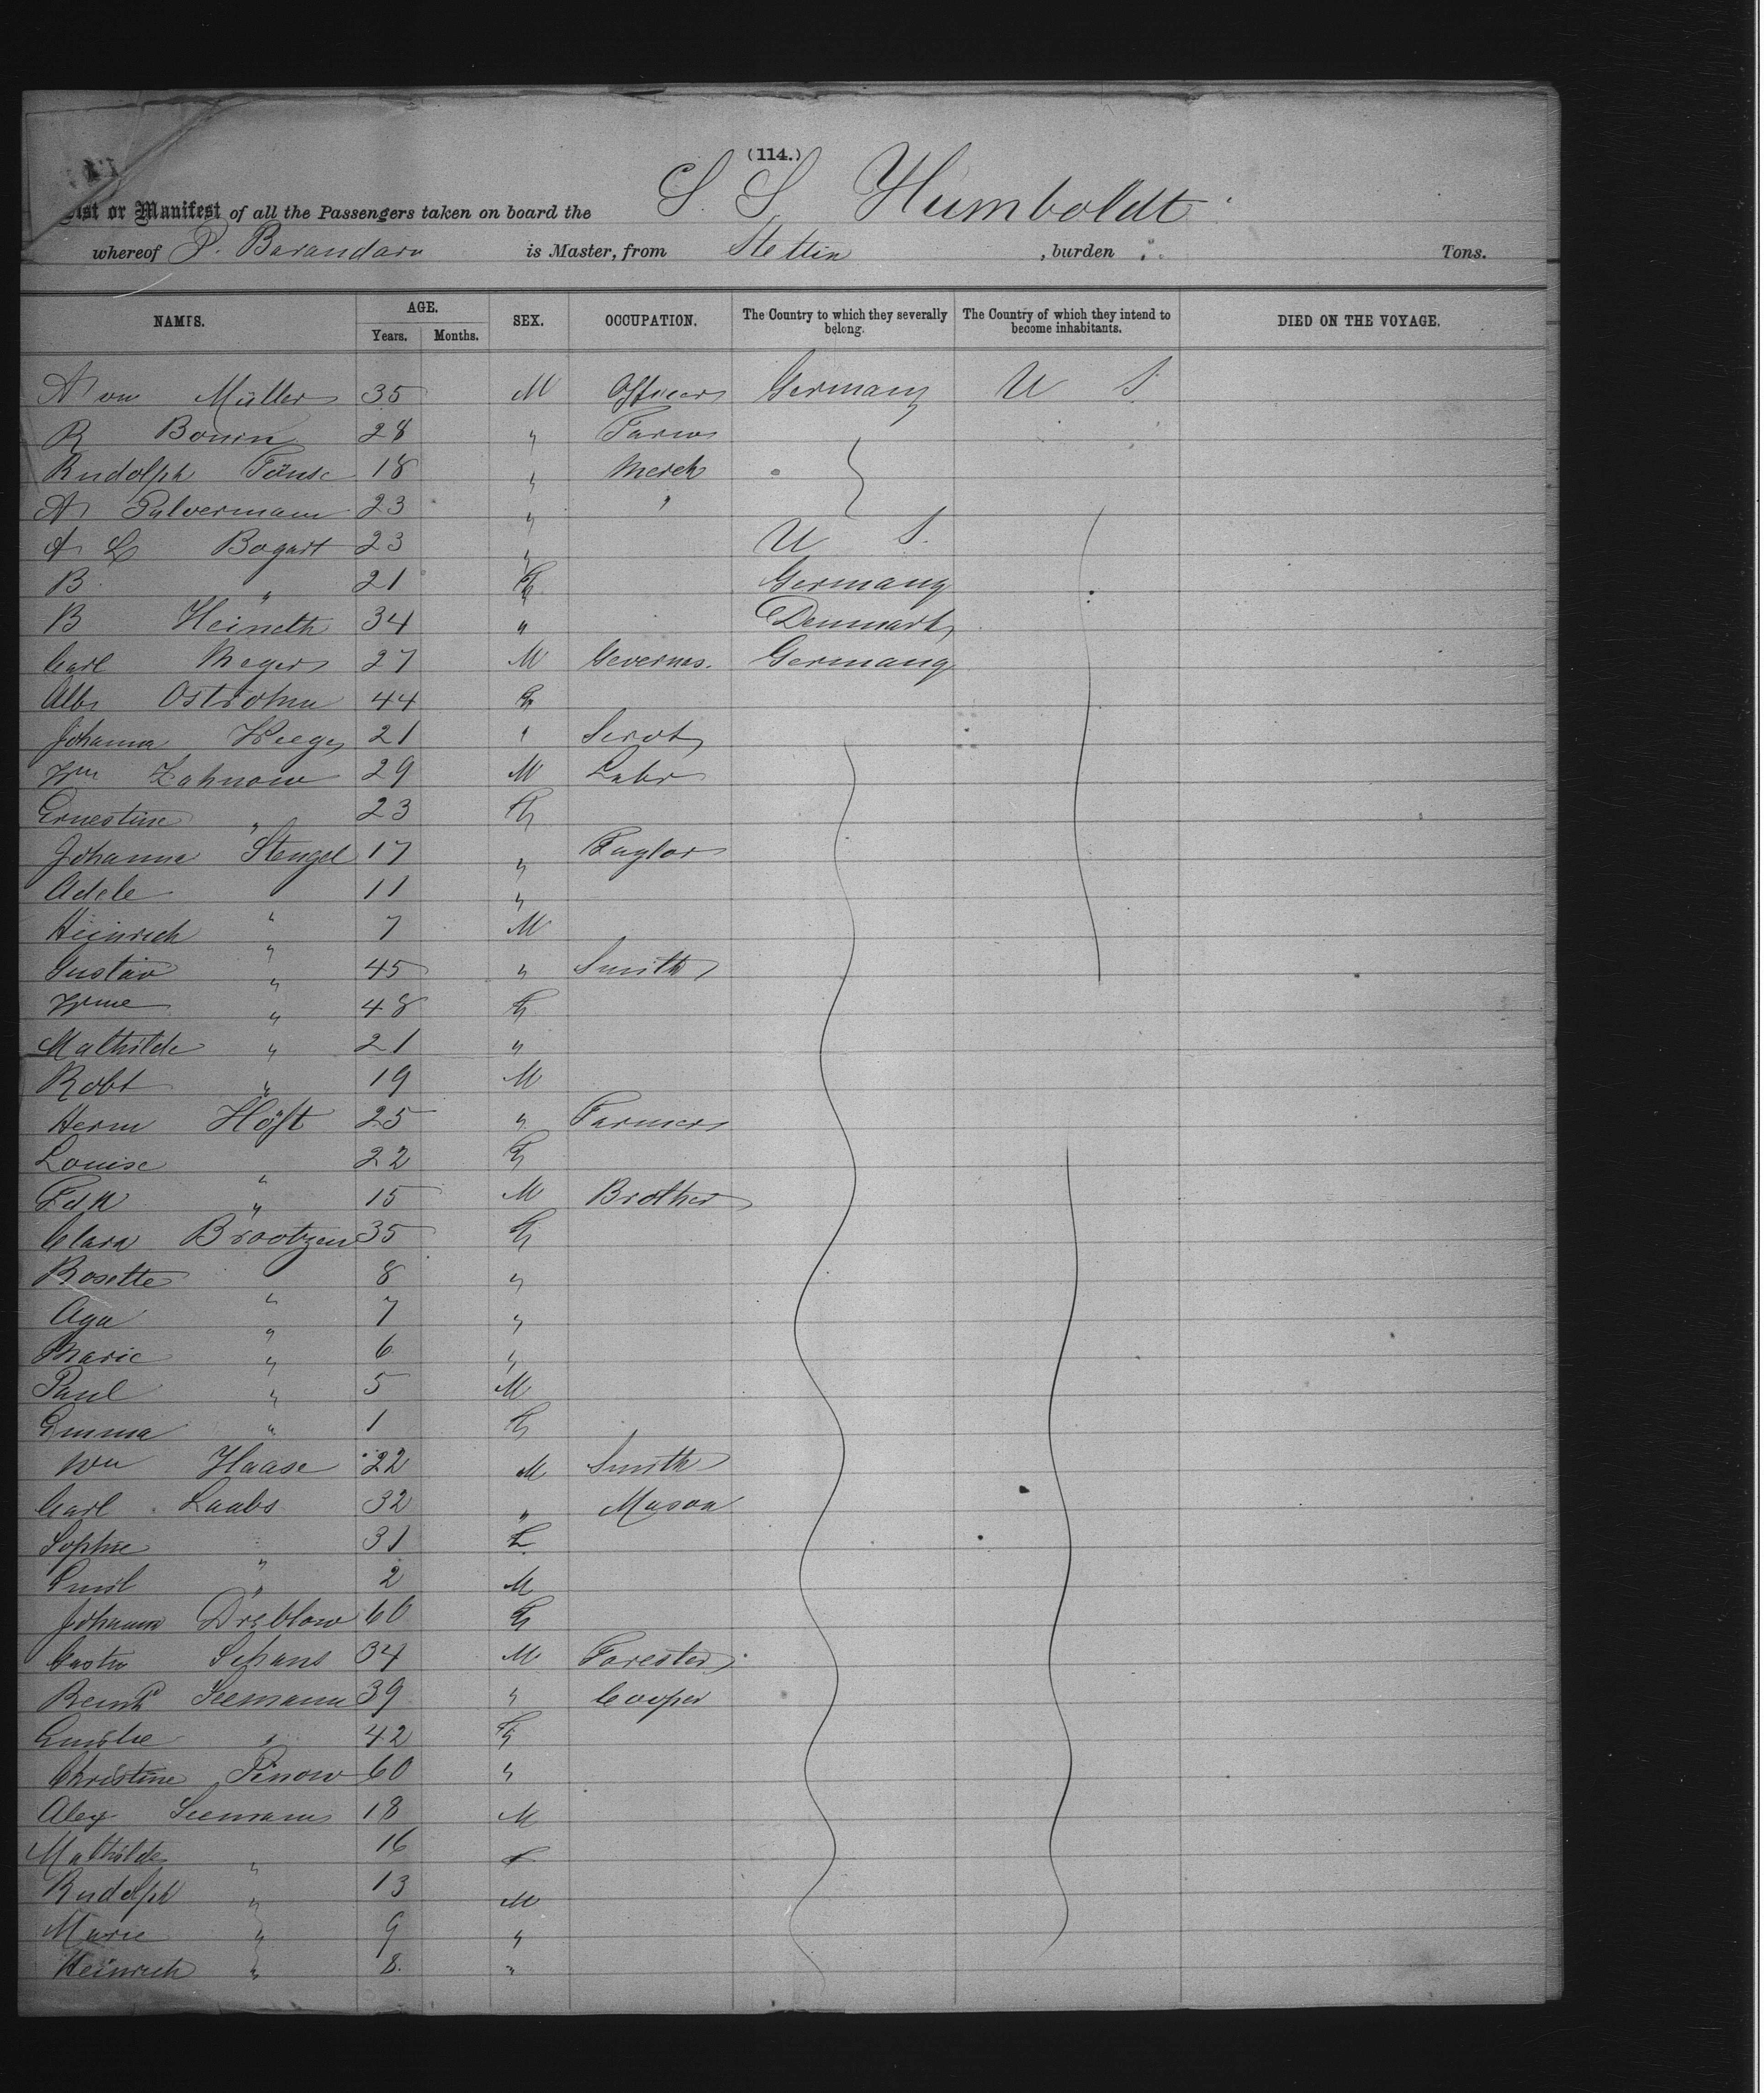 (114.)
List or Manifest of all the Passengers taken on board the S. S. Humboldt
whereof P. Barandarn is Master, from Stettin , burden Tons.
NAMES. AGE. Years. Months. SEX. OCCUPATION. The Country to which they severally belong. The Country of which they intend to become inhabitants. DIED ON THE VOYAGE.
A von Müller 35 M Officer Germany U S
R Bonin 28 " Farm
Rudolph 18 " Merch
A Pulvermann 23 " "
A L Bogart 23 " U S.
B " 21 F Germany
B Heineth 34 " Denmark
Carl Meyer 27 M Governes. Germany
Alb. Ostrohm 44 F
Johanna Weege 21 " Servt
Wm Zahnow 29 M Labr
Ernestine " 23 F
Johanna Stengel 17 " Taylor
Adele " 11 "
Heinrich " 7 M
Gustav " 45 " Smith
Wme " 48 F
Mathilde " 21 "
Robt " 19 M
Herm Höft 25 " Farmer
Louise " 22 F
Fdk " 15 M Brother
Clara Brootzen 35 F
Rosette " 8 "
Aga " 7 "
Marie " 6 "
Paul " 5 M
Emma " 1 F
Wm Haase 22 M Smith
Carl Laabs 32 " Mason
Sophie " 31 F
Emil " 2 M
Johanna Dreblow 60 F
Gustv Schans 34 M Forester
Reinh Seemann 39 " Cooper
Emilie " 42 F
Christine Pinow 60 "
Alex Seemann 18 M
Mathilde " 16 F
Rudolph " 13 M
Marie " 9 "
Heinrich " 8 "